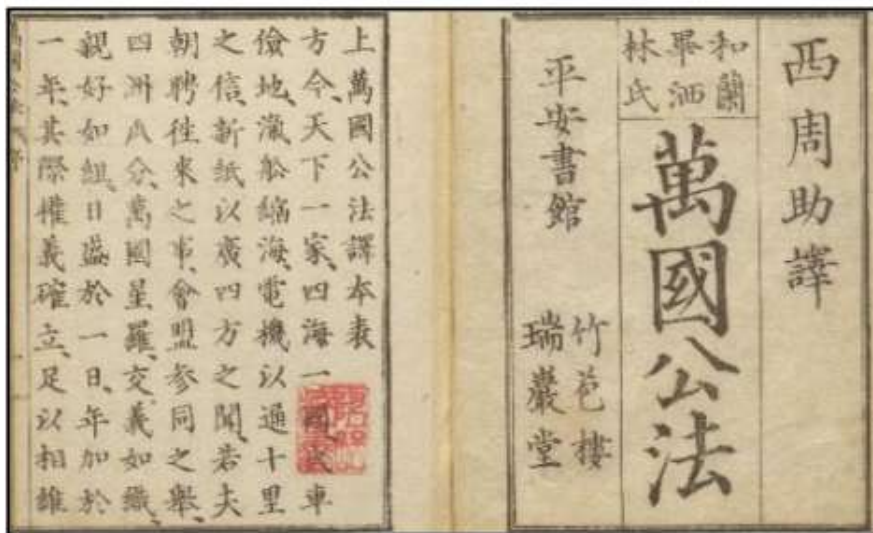 西周助譯
和蘭
畢洒
林氏
萬國公法
平安書館
竹苞樓
瑞巖堂
上萬國公法譯本表
方今、天下一家、四海一國、火車
儉地、滊船縮海、電機以通千里
之信、新紙以廣四方之聞、若夫
朝聘往來之事、會盟參同之舉、
四洲瓜分、萬國星羅、交義如織、
親好如組、日盛於一日、年加於
一年、其際權義確立、足以相維